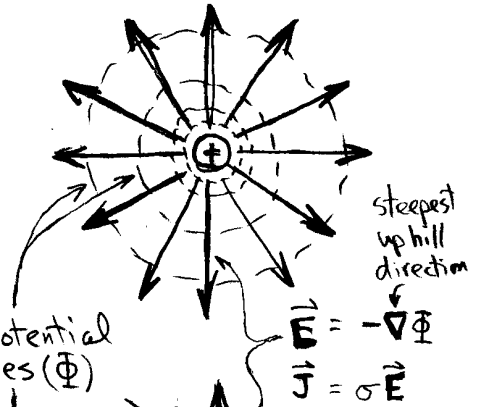 +
steepest
uphill
direction
otential
es (Φ)
E⃗ = -∇Φ
J⃗ = σE⃗